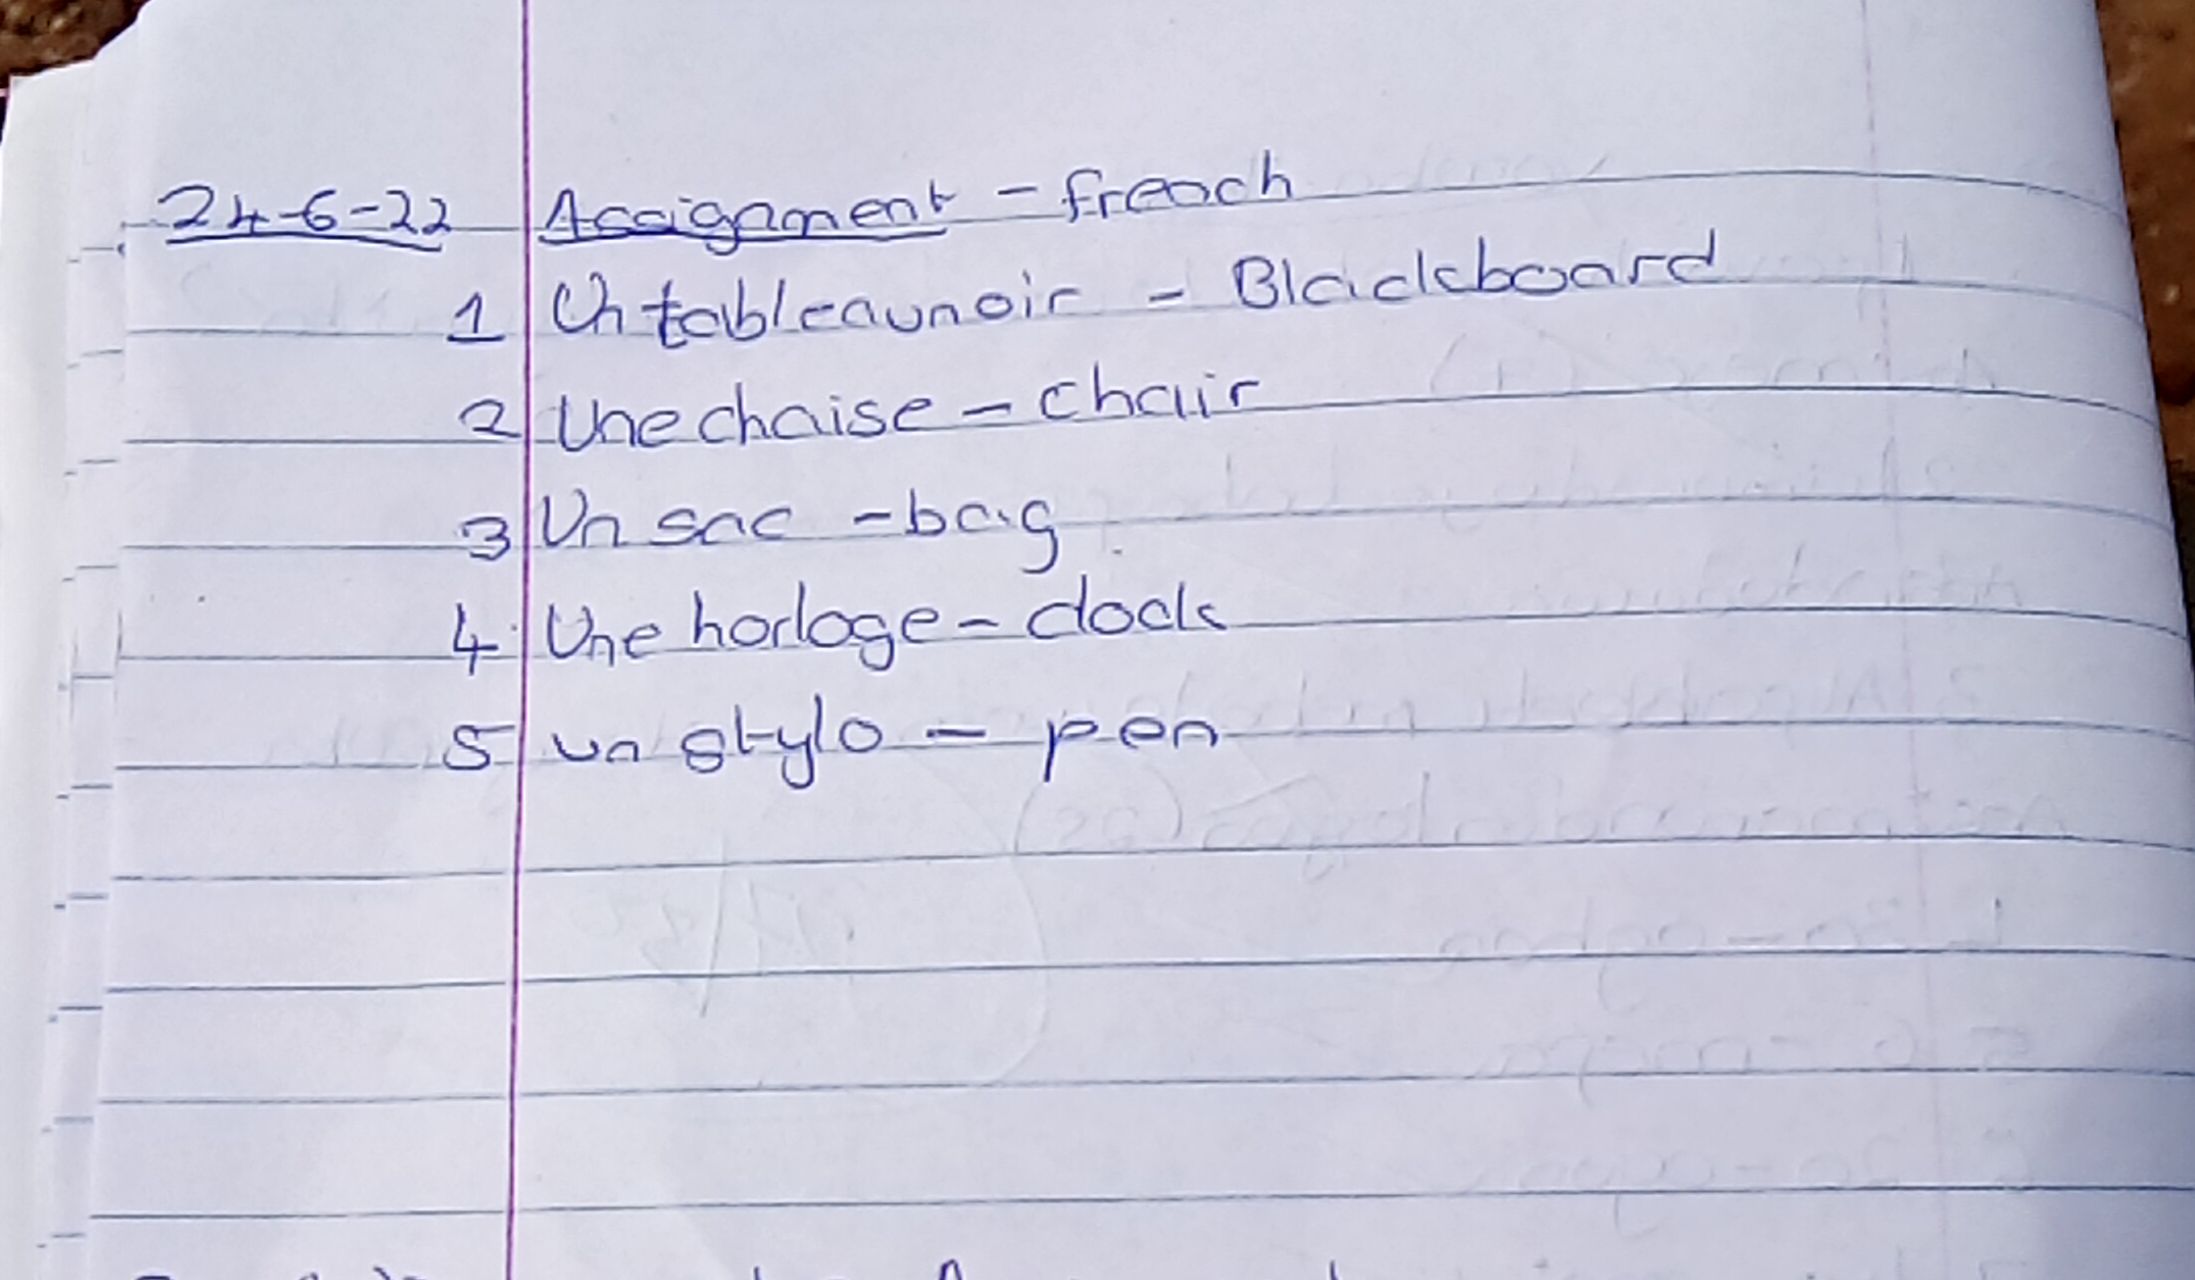 24-6-22 Assignment - french
1 Un tableaunoir - Blackboard
2 Une chaise - chair
3 Un sac - bag
4. Une horloge - clock
5 un stylo - pen